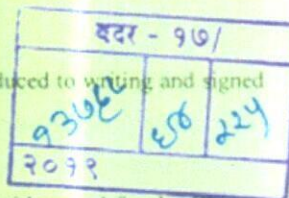 बदर - १७/
uced to writing and signed
६४
२२५
२०११